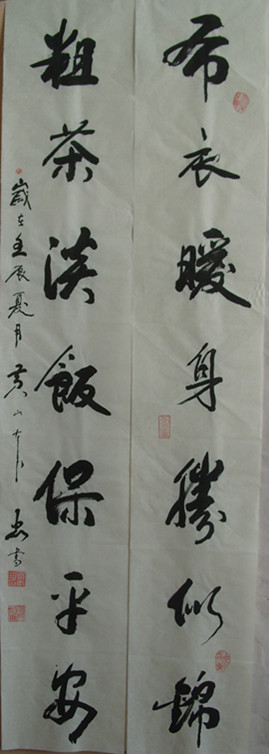 布衣暖身勝似錦
粗茶淡飯保平安
歲在壬辰夏月黃山